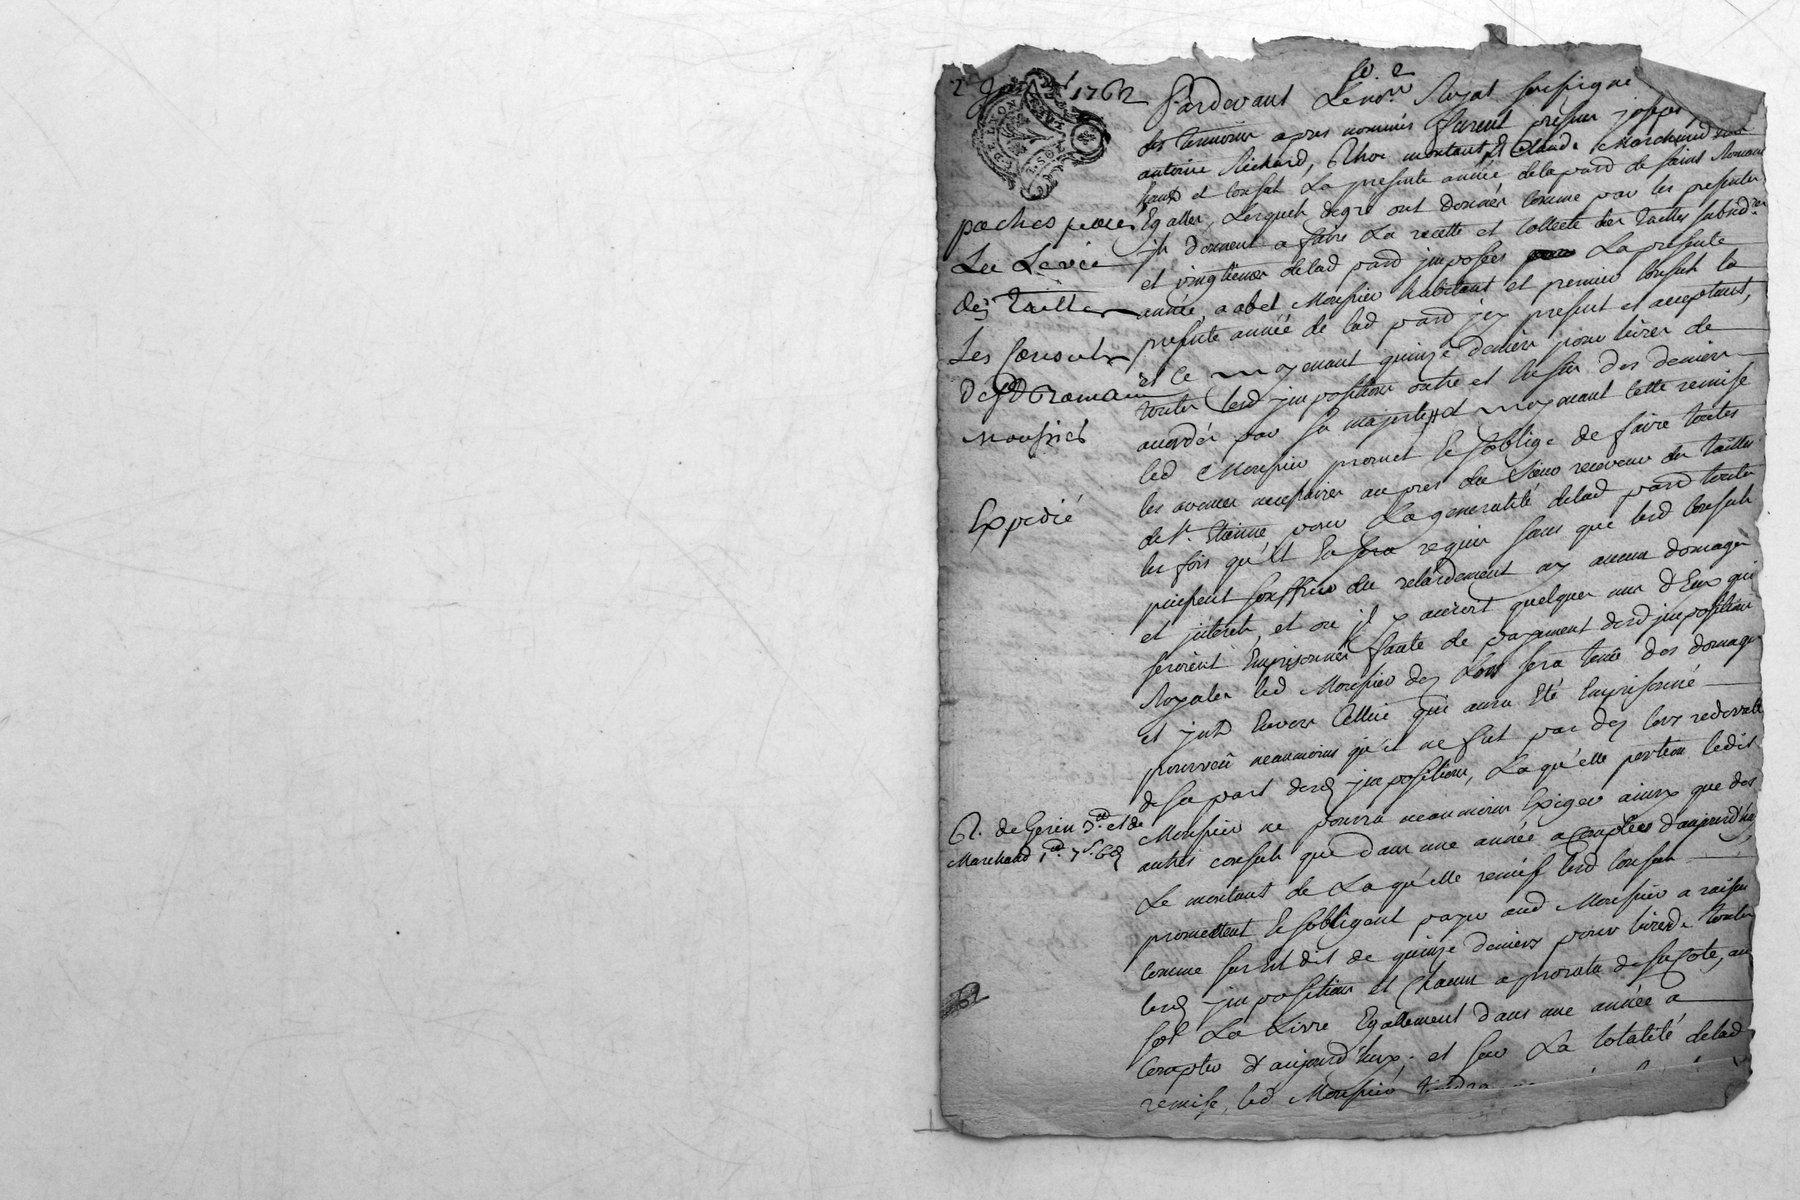 1762
fo. 2
Pardevant Le nore. Royal soussigné
des temoins apres nommés furent presens joseph
antoine Richard, et Claude Marchand
et consul La presente année de la paroisse de saint Romain
Lesquels degré ont donnés comme par les presentes
ils donnent a faire La recette et collecte des tailles subsid.res
et vingtiemes de lad paroisse imposées La presente
année, a abel Mousnier habitant et premier consul la
presente année de lad paroisse icy present et acceptant,
et Ce moyenant quinze deniers pour livres de
toutes lesd impositions outre et les deniers
accordés par sa majesté, et moyenant cette remise
led Mousnier promet et s'oblige de faire toutes
les avances necessaires aupres du sieur receveur des tailles
de St. Etienne pour La generalité de lad paroisse toutes
les fois qu'il En sera requis sans que lesd consuls
puissent souffrir du retardement ny aucun domages
et interets, et ou il y auroit quelques uns d'Eux qui
seroient Emprisonnés faute de payement desd impositions
Royales led Mousnier des Lors sera tenu des domages
et int. Envers Celluy qui aura Eté Emprisonné
pourveu neanmoins qu'il ne fut pas des lors redevable
de sa part desd impositions, Laquelle portion ledit
Mousnier ne pourra neanmoins Exiger ainsy que des
autres consuls que dans une année a Compter d'aujourd'huy,
Le montant de Laquelle remise lesd consuls
promettent et s'obligent payer aud Mousnier a raison
comme sus Est dit de quinze deniers pour livre de toutes
lesd impositions et chacun a prorata de sa Cote, au
sol La Livre Egallement dans une année a
Compter d'aujourd'huy. et sur La totalité de lad
remise, led Mousnier
Les Consuls
Mousnier
Expedié
Marchand